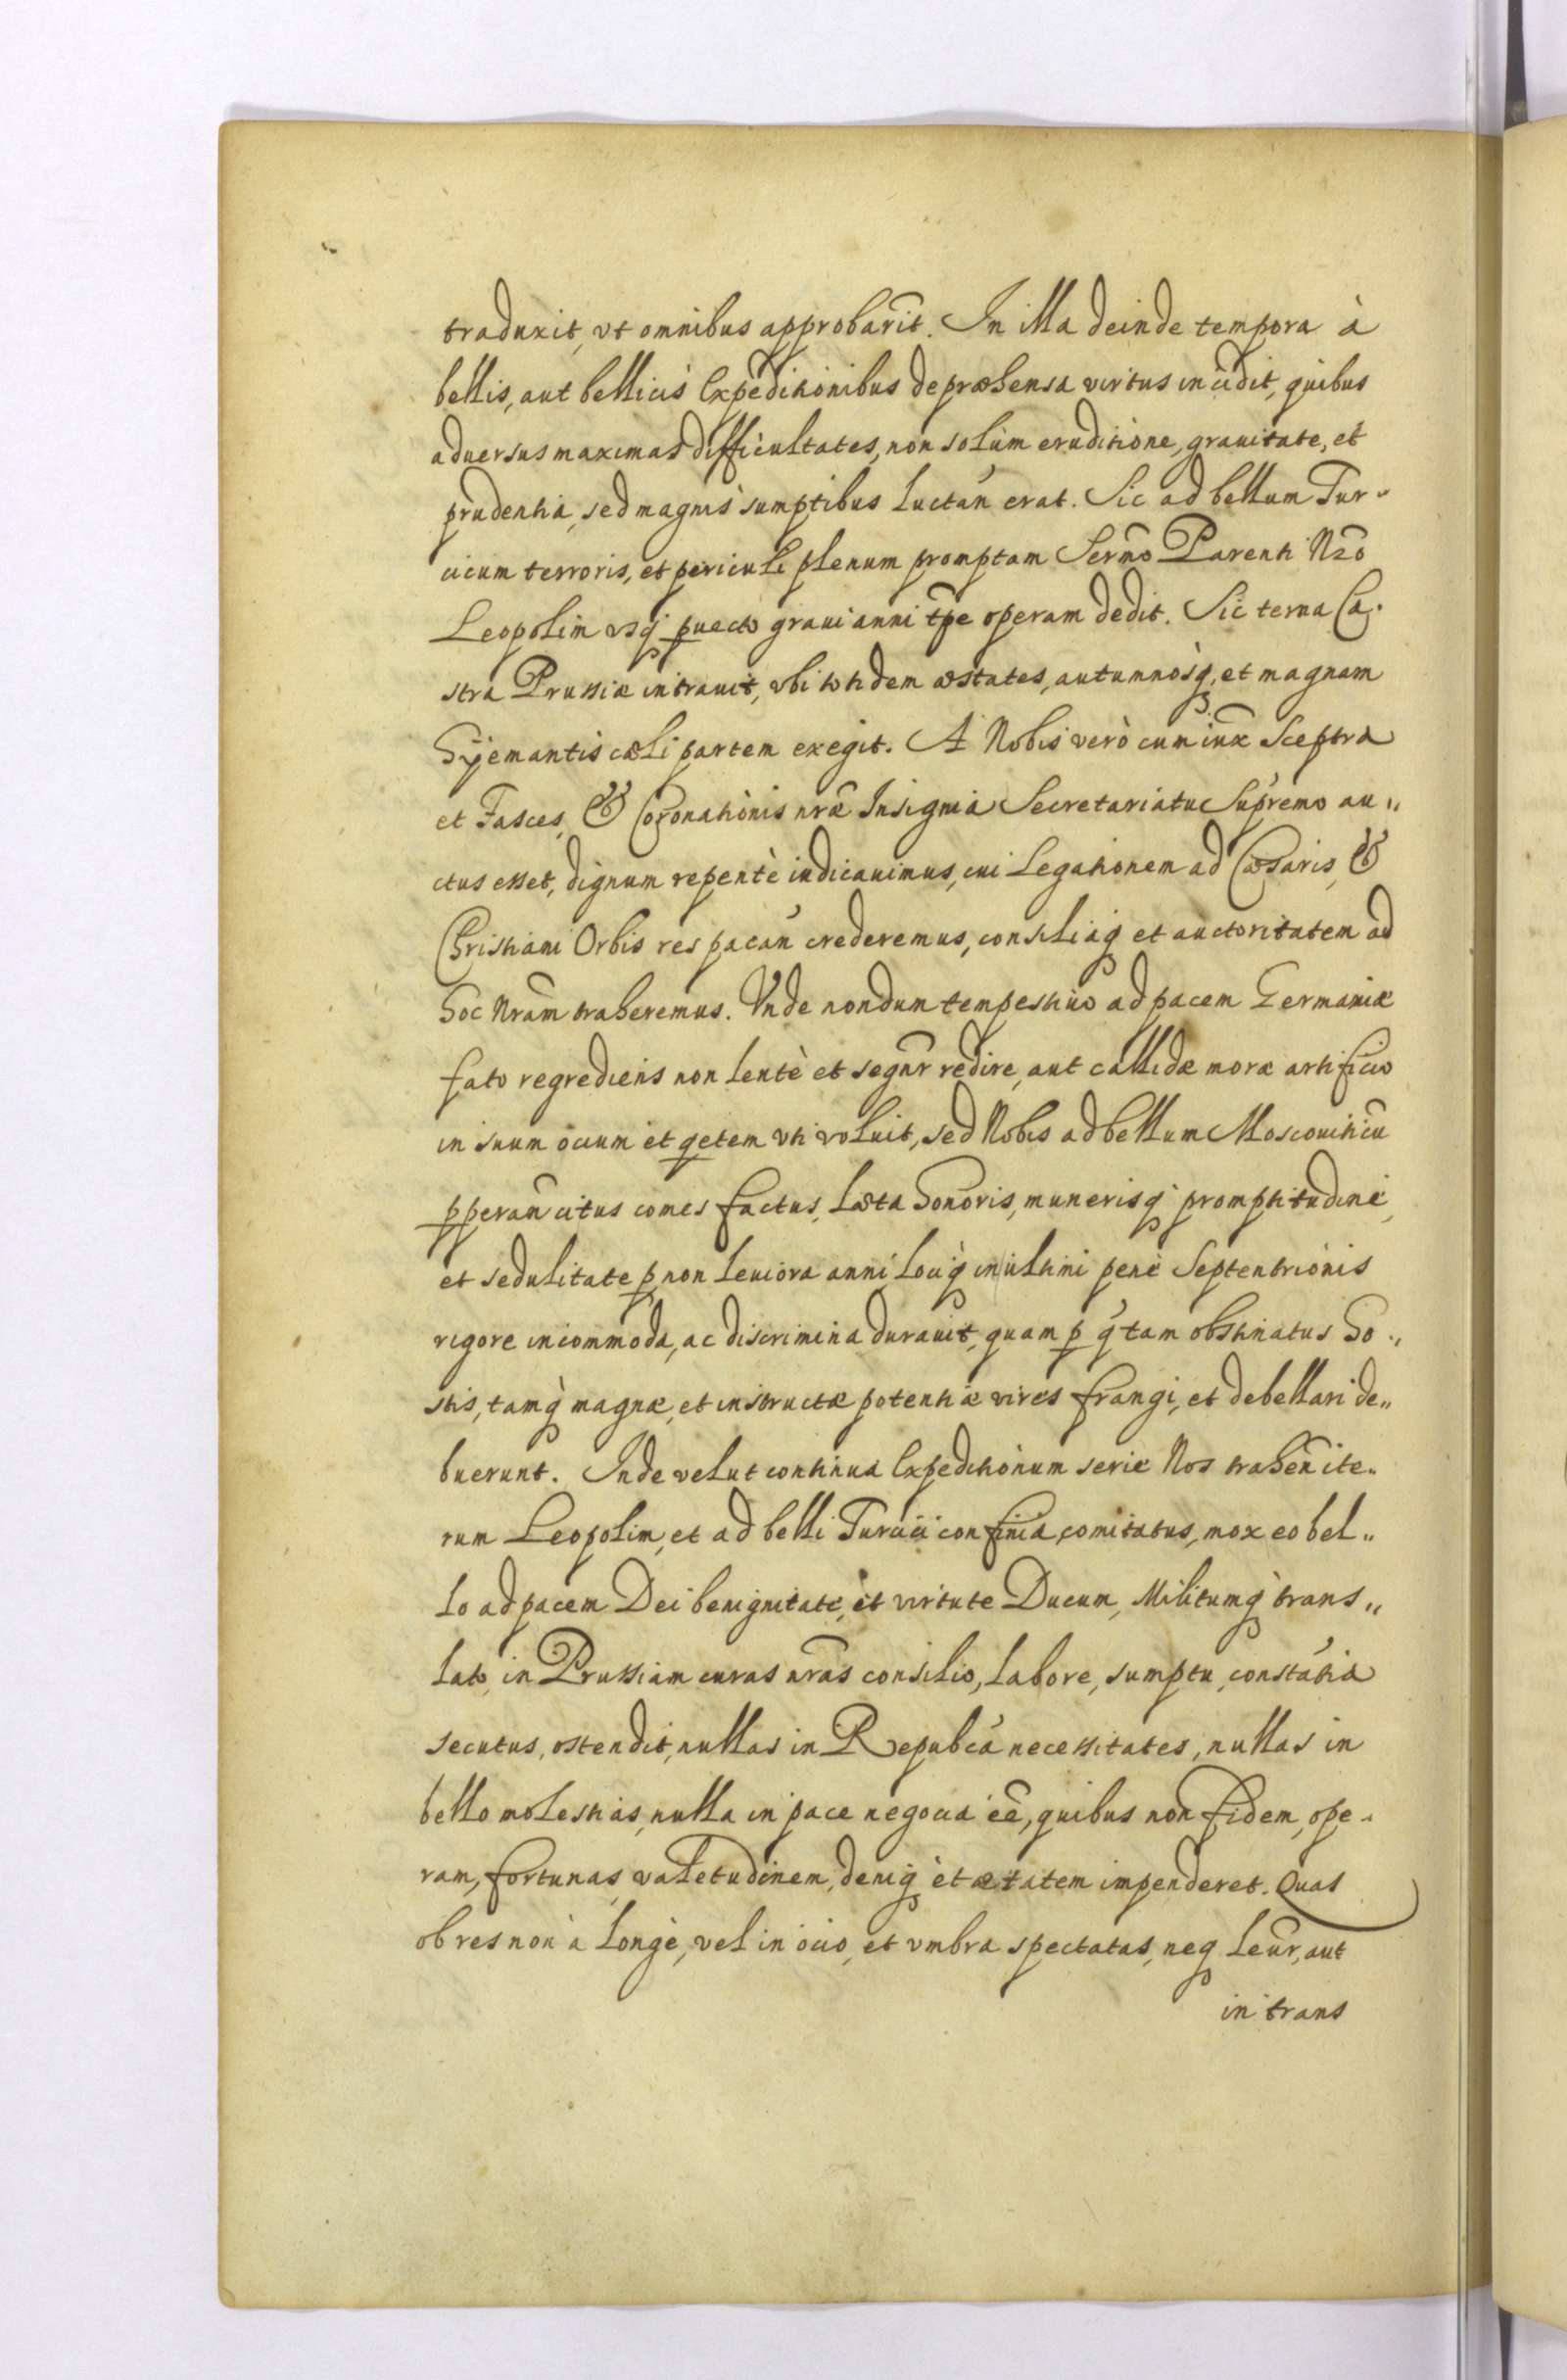 traduxit, vt omnibus approbarit. In illa deinde tempora à
bellis, aut bellicis Expeditionibus depræhensa virtus incidit, quibus
aduersus maximas difficultates, non solùm eruditione, grauitate, et
prudentia, sed magnis sumptibus luctañ erat. Sic ad bellum Tur-
cicum terroris, et periculi plenum promptam Sermõ Parenti Nrõ
Leopolim vsq́ꝫ ꝓuecto graui anni tp̃e operam dedit. Sic terna Ca-
stra Prussiæ intrauit, vbi totidem æstates, autumnosq̀ꝫ, et magnam
Hyemantis cæli partem exegit. A Nobis verò cum iux̃ Sceptra
et Fasces, & Coronationis nr̃æ Insignia Secretariatu Supremo au„
ctus esset, dignum repentè iudicauimus, cui Legationem ad Cæsaris, &
Christiani Orbis res pacañ crederemus, consiliaq̀ꝫ et auctoritatem ad
hoc Nr̃am traheremus. Vnde nondum tempestiuo ad pacem Germaniæ
fato regrediens non lentè et segnr̃ redire, aut callidæ moræ artificio
in suum ocium et q̱etem vti voluit, sed Nobis ad bellum Moscouiticũ
ꝓperañ citus comes factus, læta honoris, munerisq́ꝫ promptitudine,
et sedulitate ꝑ non leuiora anni, lociq̀ꝫ in ultimi penè Septentrionis
rigore incommoda, ac discrimina durauit, quam ꝑ q́ tam obstinatus Ho„
stis, tamq̀ꝫ magnæ, et instructæ potentiæ vires frangi, et debellari de„
buerunt. Inde velut continua Expeditionum serie Nos traheñ ite„
rum Leopolim, et ad belli Turcici confinia comitatus, mox eo bel„
lo ad pacem Dei benignitate, et virtute Ducum, Militumq̀ꝫ trans„
lato, in Prussiam curas nr̃as consilio, labore, sumptu, constãtia
secutus, ostendit, nullas in Repubcá necessitates, nullas in
bello molestias, nulla in pace negocia eẽ, quibus non fidem, ope„
ram, fortunas, valetudinem, deniqꝫ et ætatem impenderet. Quas
ob res non à longè, vel in ocio, et vmbra spectatas, neqꝫ leũr, aut
in trans